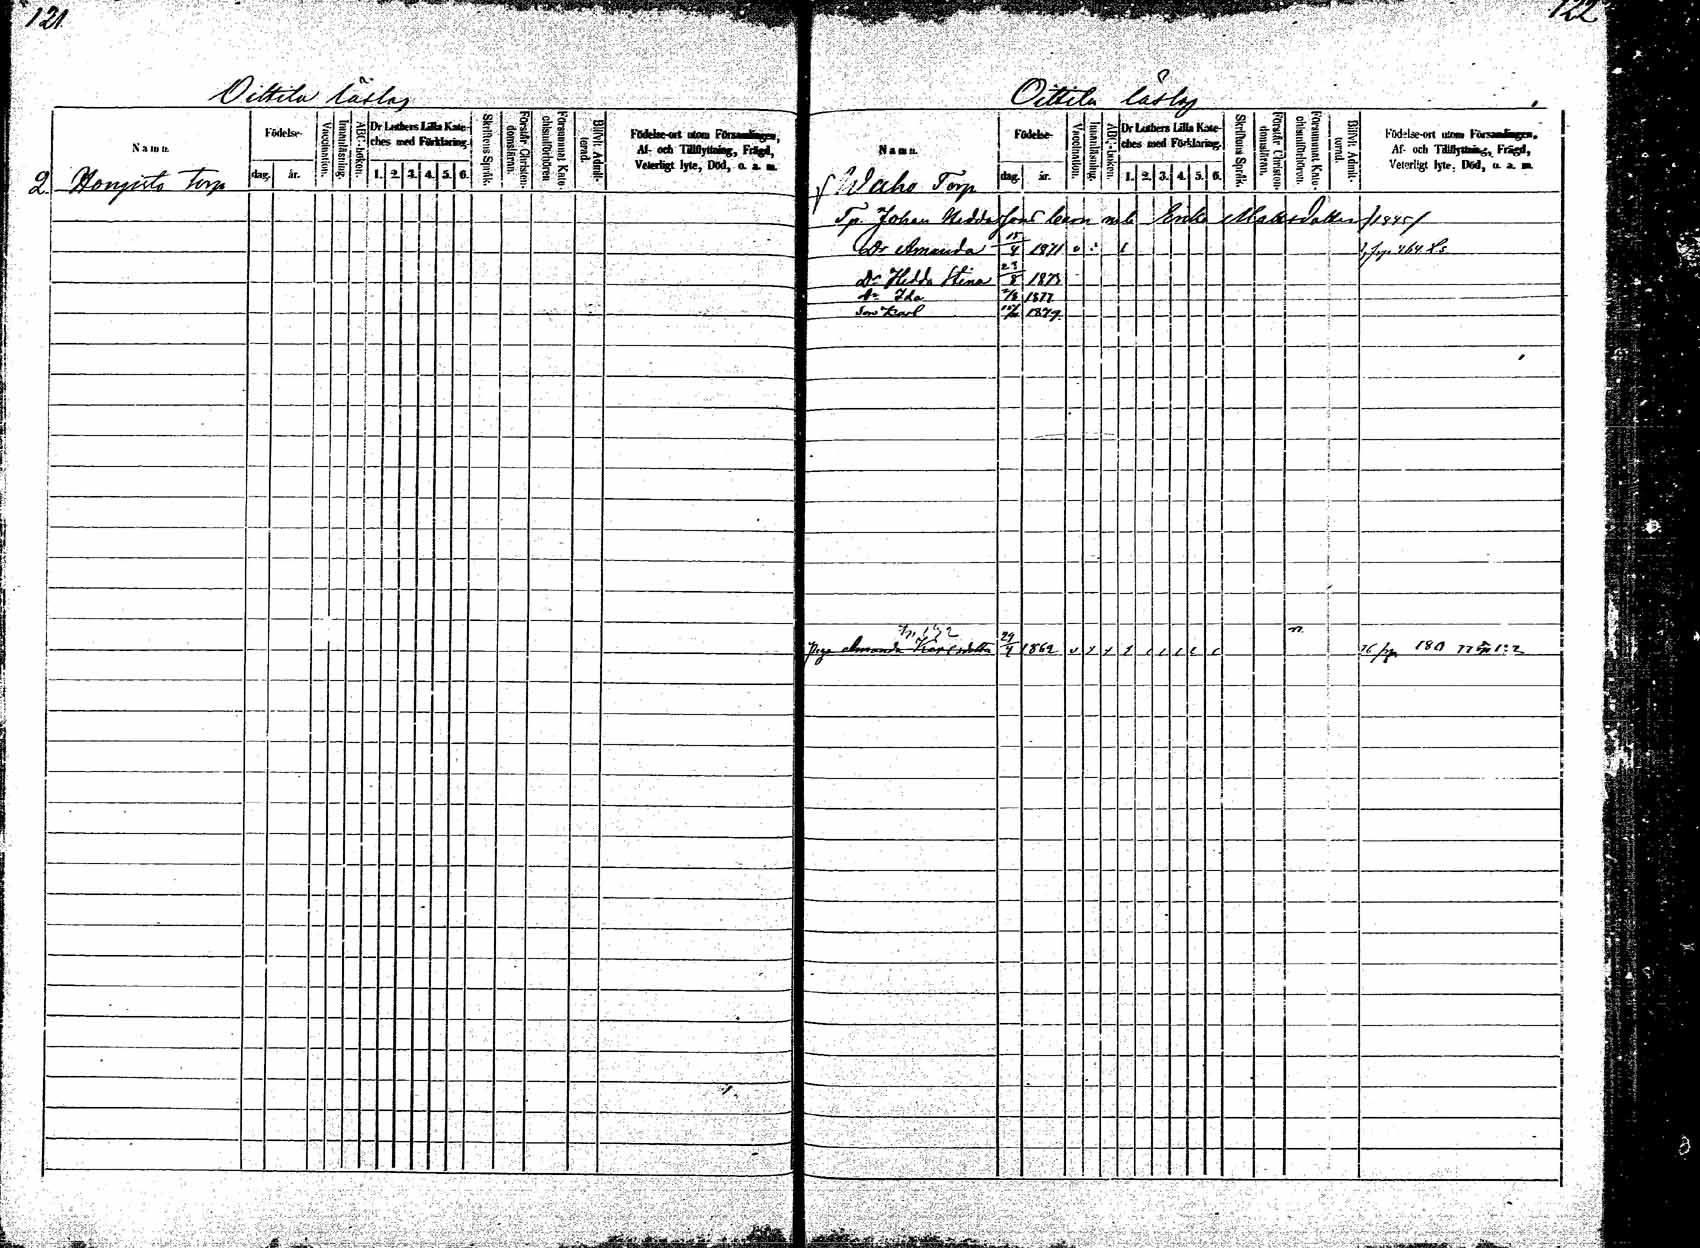 121
Oittila läslag
Namn.
Födelse-
dag.
år.
Vaccination.
Innanläsning.
ABC-boken.
Dr Luthers Lilla Kate-
ches med Förklaring.
1. 2. 3. 4. 5. 6.
Skriftens Språk.
Förstår Christen-
domsläran.
Försummat Kate-
chismiförhören
Blifvit Admit-
terad.
Födelse-ort utom Församlingen,
Af- och Tillflyttning, Frägd,
Veterligt lyte, Död, o. a. m.
2 Hongisto Torp
122
Oittila läslag
Namn.
Födelse-
dag.
år.
Vaccination.
Innanläsning.
ABC-boken.
Dr Luthers Lilla Kate-
ches med Förklaring.
1. 2. 3. 4. 5. 6.
Skriftens Språk.
Förstår Christen-
domsläran.
Försummat Kate-
chismiförhören.
Blifvit Admit-
terad.
Födelse-ort utom Församlingen,
Af- och Tillflyttning, Frägd,
Veterligt lyte, Död, o. a. m.
Waho Torp
Tp. Johan Enka Matsdotter /1845/
Dr Amanda 15/4 1871
Dr Hedda Stina 23/8 1873
Dr Ida 1877
Son Karl 1879.
Amanda Karlsdotter 29/4 1862